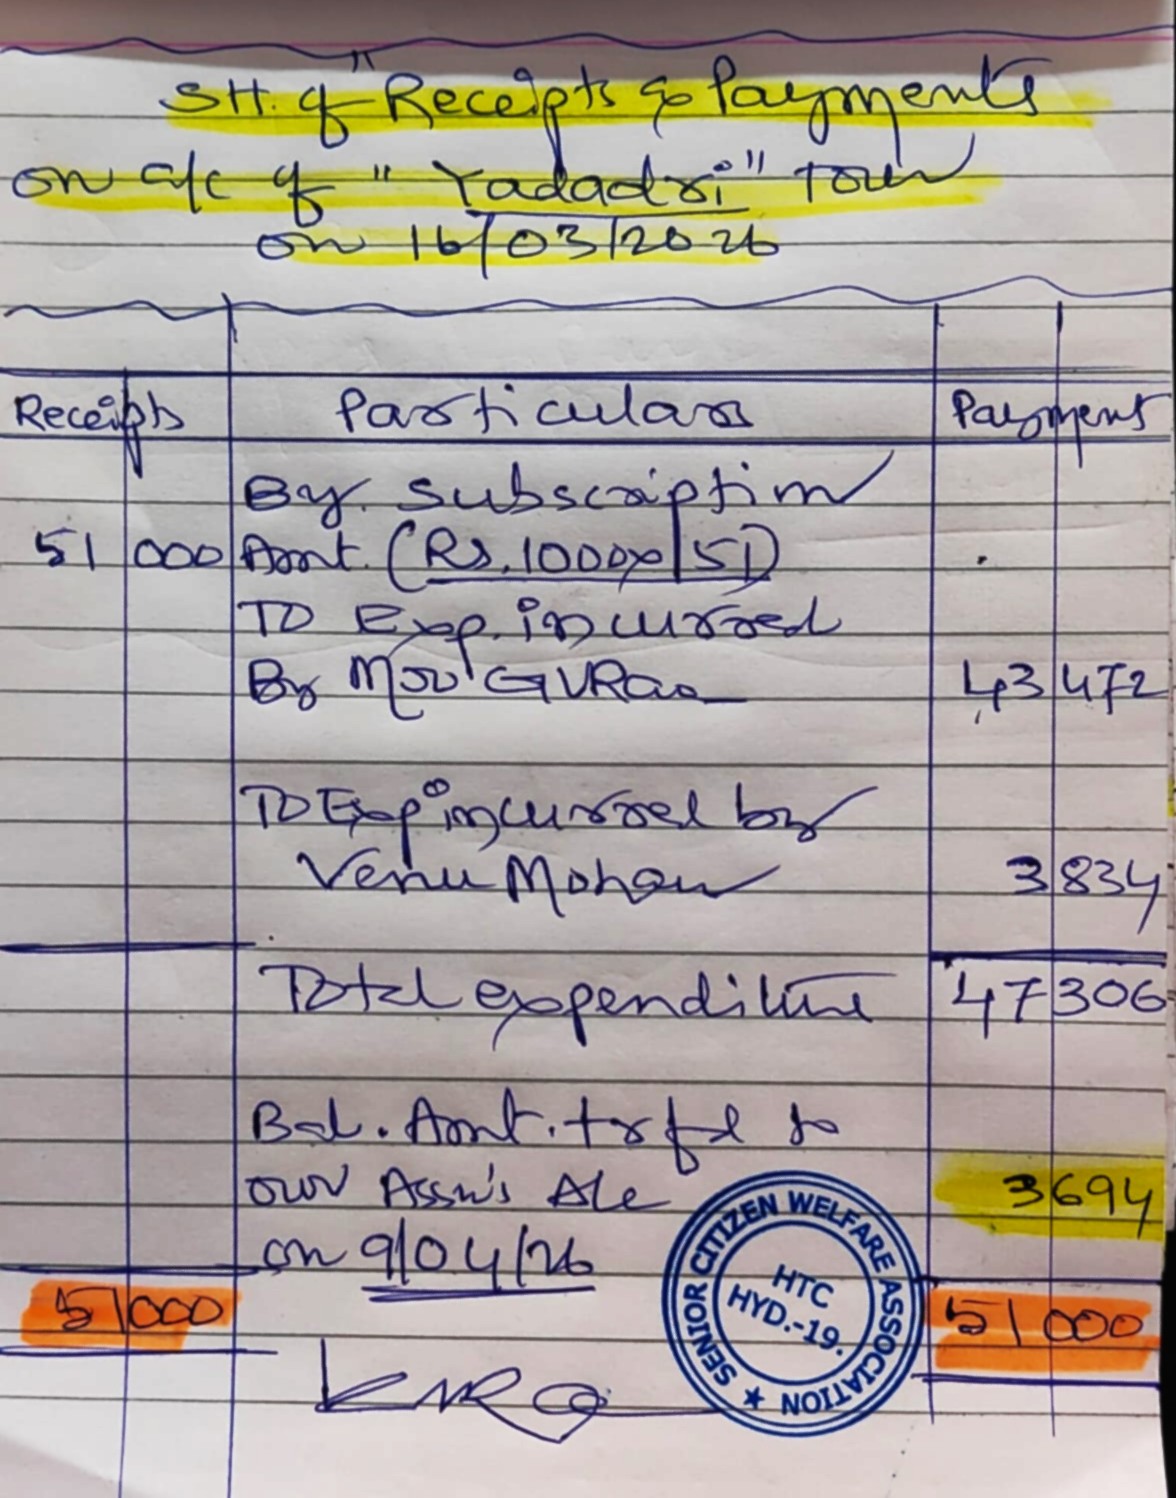 SH. of "Receipts & Payments
on a/c of "Yadadri" Tour
on 16/03/2026
Receipts Particulars Payment
By. Subscription
51 000 Amt. (Rs. 1000x 51)
To Exp. incurred
By Mr GVRao 43 472
To Exp incurred by
Venu Mohan 3 834
Total expenditure 47 306
Bal. Amt. trfd to
our Assn's A/c 3 694
on 9/04/26
51 000 51 000
SENIOR CITIZEN WELFARE ASSOCIATION ★
HTC
HYD.-19.